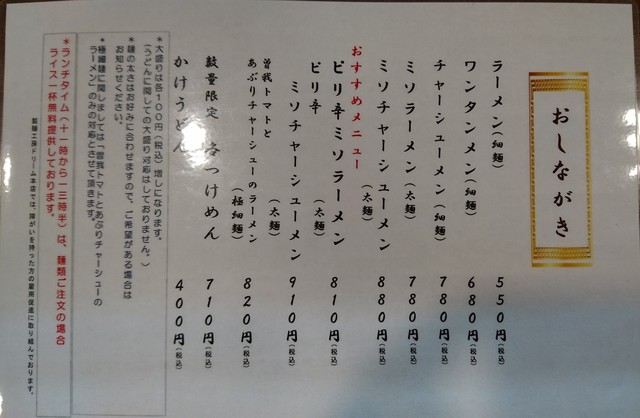 おしながき
ラーメン(細麺) 550円(税込)
ワンタンメン(細麺) 680円(税込)
チャーシューメン(細麺) 780円(税込)
ミソラーメン(太麺) 780円(税込)
ミソチャーシューメン(太麺) 880円(税込)
おすすめメニュー
ピリ辛ミソラーメン(太麺) 810円(税込)
ピリ辛
ミソチャーシューメン(太麺) 910円(税込)
曽我トマトと
あぶりチャーシューのラーメン(極細麺) 820円(税込)
数量限定 冷つけめん 710円(税込)
かけうどん 400円(税込)
*大盛りは各100円(税込)増しになります。
(うどんに関しての大盛り対応はしておりません。)
*麺の太さはお好みに合わせますので、ご希望がある場合は
お知らせください。
*極細麺に関しましては「曽我トマトとあぶりチャーシューの
ラーメン」のみの対応とさせて頂きます。
*ランチタイム(十一時から一三時半)は、麺類ご注文の場合
ライス一杯無料提供しております。
製麺工房ドリーム本店では、障がいを持った方の雇用促進に取り組んでおります。